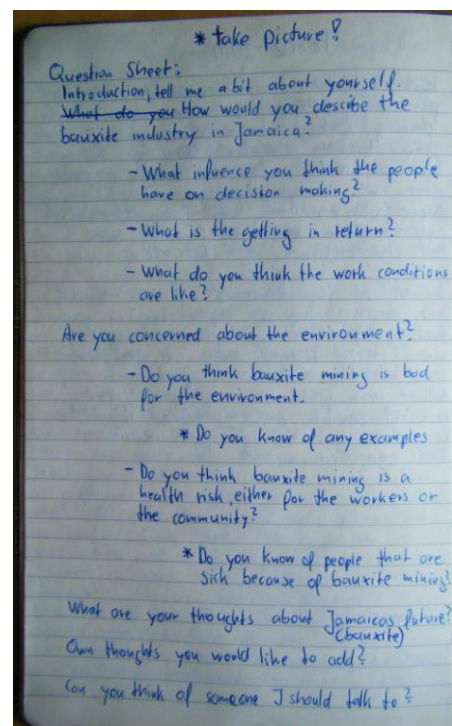 * take picture!
Question Sheet:
Introduction, tell me a bit about yourself.
What do you How would you descibe the
bauxite industry in Jamaica?
- What influence you think the people
have on decision making?
- What is the getting in return?
- What do you think the work conditions
are like?
Are you concerned about the environment?
- Do you think bauxite mining is bad
for the environment.
* Do you know of any examples
- Do you think bauxite mining is a
health risk, either for the workers or
the community?
* Do you know of people that are
sick because of bauxite mining?
What are your thoughts about Jamaicas future?
(bauxite)
Own thoughts you would like to add?
Can you think of someone I should talk to?